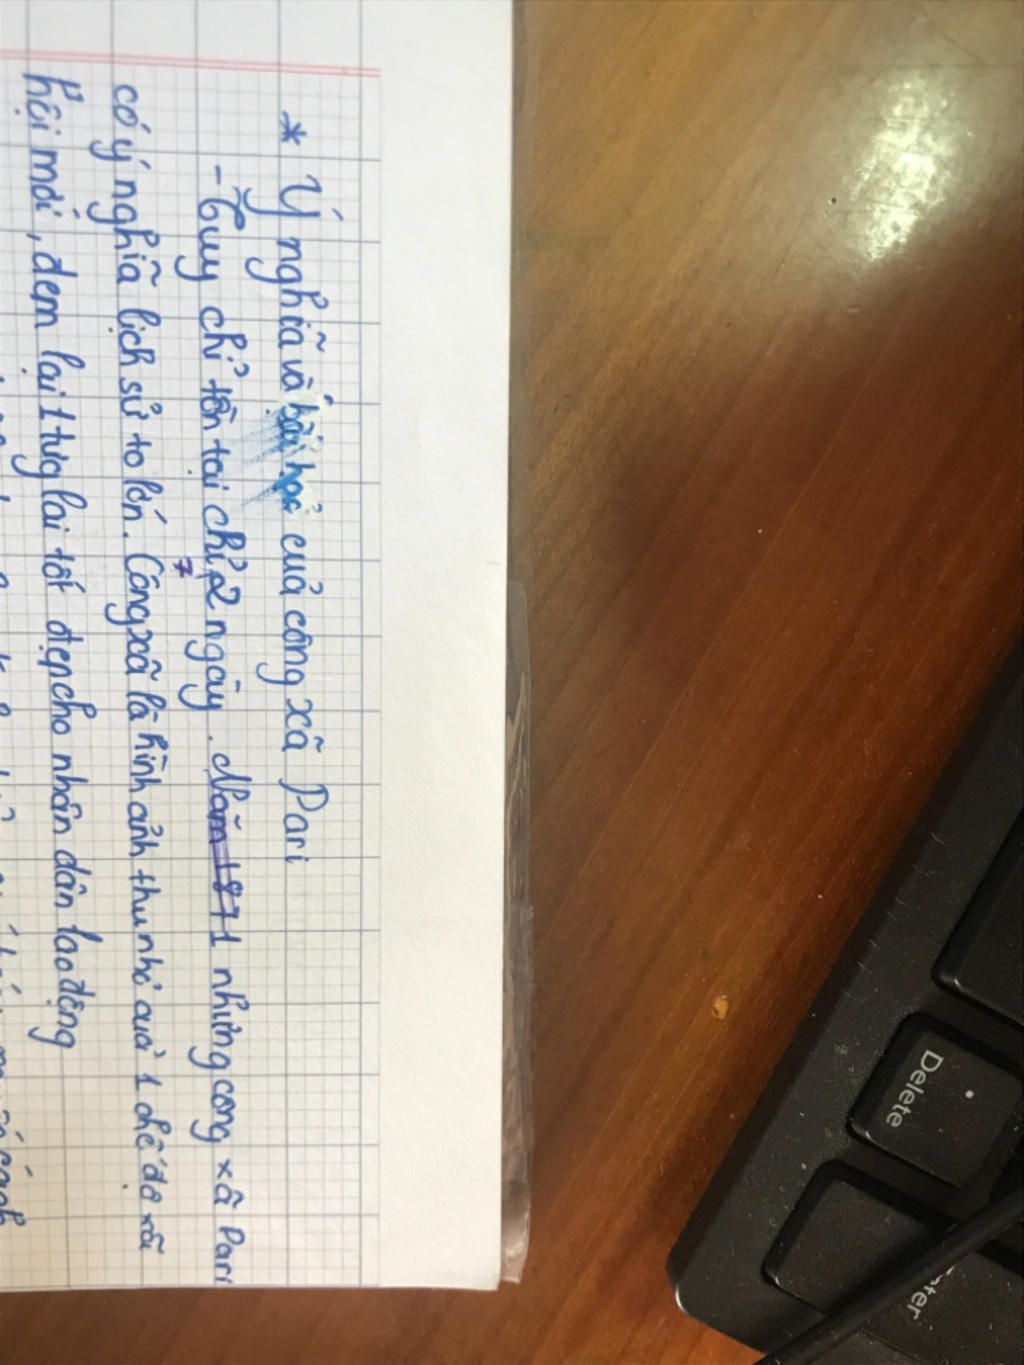 * Ý nghĩa và bài học của công xã Pari
- Tuy chỉ tồn tại chỉ 72 ngày. Năm 1871 nhưng công xã Pari
có ý nghĩa lịch sử to lớn. Công xã là hình ảnh thu nhỏ của 1 chế độ xã
hội mới, đem lại 1 tương lai tốt đẹp cho nhân dân lao động
Delete